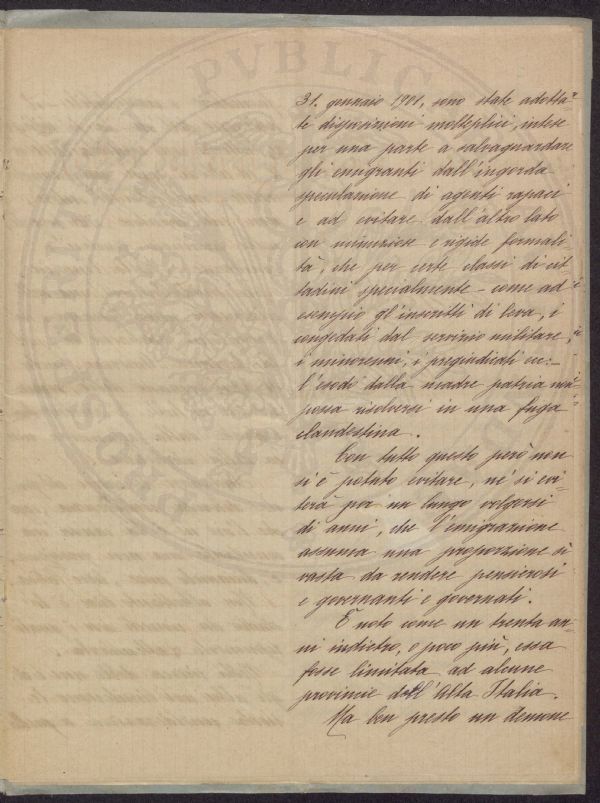 31. gennaio 1901, sono state adotta-
te disposizioni molteplici, intese
per una parte a salvaguardare
gli emigranti dall'ingorda
speculazione di agenti rapaci
e ad evitare dall'altro lato
con minuziose e rigide formali
tà, che per certe classi di cit-
tadini specialmente - come ad
esempio gl'inscritti di leva, i
congedati dal servizio militare,
i minorenni, i pregiudicati ec: -
l'esodo dalla madre patria
possa risolversi in una fuga
clandestina.
Con tutto questo però non
si è potuto evitare, nè si evi-
terà per un lungo volgersi
di anni, che l'emigrazione
assuma una proporzione sì
vasta da rendere pensierosi
e governanti e governati.
È noto come un trenta an-
ni indietro, o poco più, essa
fosse limitata ad alcune
provincie dell'Alta Italia.
Ma ben presto un demone
PVBLIC